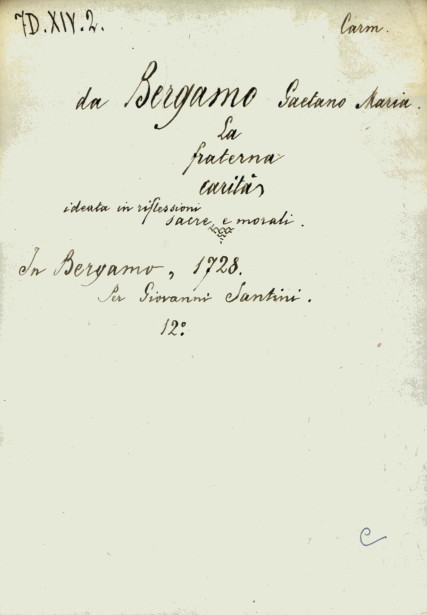 7D.XIV.2. Carm.
da Bergamo Gaetano Maria.
La
fraterna
carità
ideata in riflessioni
sacre e morali.
In Bergamo, 1728.
Per Giovanni Santini.
12°
C